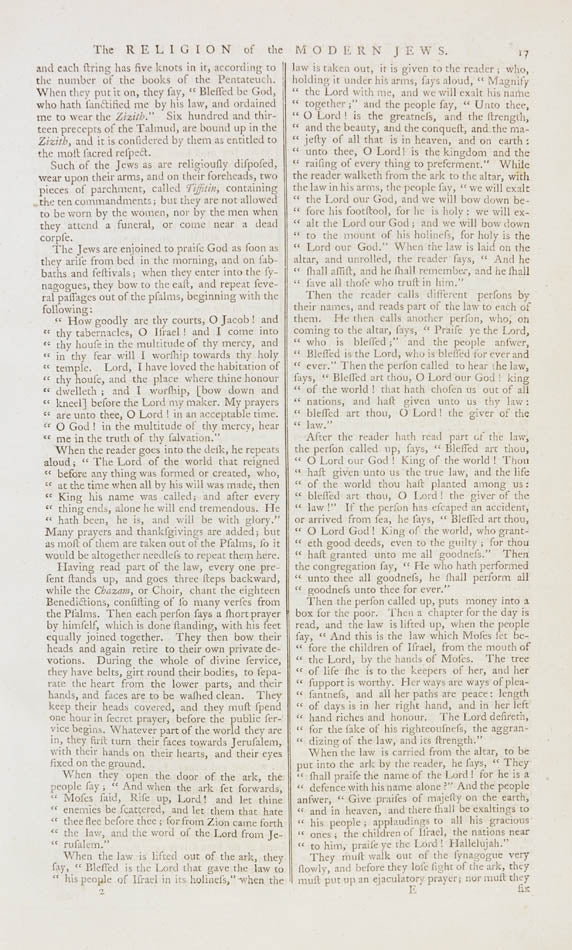 The RELIGION of the MODERN JEWS. 17
and each ſtring has five knots in it, according to
the number of the books of the Pentateuch.
When they put it on, they ſay, “ Bleſſed be God,
who hath ſanctified me by his law, and ordained
me to wear the Zizith.” Six hundred and thir-
teen precepts of the Talmud, are bound up in the
Zizith, and it is conſidered by them as entitled to
the moſt ſacred reſpect.
Such of the Jews as are religiouſly diſpoſed,
wear upon their arms, and on their foreheads, two
pieces of parchment, called Tiffitin, containing
the ten commandments; but they are not allowed
to be worn by the women, nor by the men when
they attend a funeral, or come near a dead
corpſe.
The Jews are enjoined to praiſe God as ſoon as
they ariſe from bed in the morning, and on ſab-
baths and feſtivals; when they enter into the ſy-
nagogues, they bow to the eaſt, and repeat ſeve-
ral paſſages out of the pſalms, beginning with the
following:
“ How goodly are thy courts, O Jacob! and
“ thy tabernacles, O Iſrael! and I come into
“ thy houſe in the multitude of thy mercy, and
“ in thy fear will I worſhip towards thy holy
“ temple. Lord, I have loved the habitation of
“ thy houſe, and the place where thine honour
“ dwelleth; and I worſhip, [bow down and
“ kneel] before the Lord my maker. My prayers
“ are unto thee, O Lord! in an acceptable time.
“ O God! in the multitude of thy mercy, hear
“ me in the truth of thy ſalvation.”
When the reader goes into the deſk, he repeats
aloud; “ The Lord of the world that reigned
“ before any thing was formed or created, who,
“ at the time when all by his will was made, then
“ King his name was called; and after every
“ thing ends, alone he will end tremendous. He
“ hath been, he is, and will be with glory.”
Many prayers and thankſgivings are added; but
as moſt of them are taken out of the Pſalms, ſo it
would be altogether needleſs to repeat them here.
Having read part of the law, every one pre-
ſent ſtands up, and goes three ſteps backward,
while the Chazam, or Choir, chant the eighteen
Benedictions, conſiſting of ſo many verſes from
the Pſalms. Then each perſon ſays a ſhort prayer
by himſelf, which is done ſtanding, with his feet
equally joined together. They then bow their
heads and again retire to their own private de-
votions. During the whole of divine ſervice,
they have belts, girt round their bodies, to ſepa-
rate the heart from the lower parts, and their
hands, and faces are to be waſhed clean. They
keep their heads covered, and they muſt ſpend
one hour in ſecret prayer, before the public ſer-
vice begins. Whatever part of the world they are
in, they firſt turn their faces towards Jeruſalem,
with their hands on their hearts, and their eyes
fixed on the ground.
When they open the door of the ark, the
people ſay; “ And when the ark ſet forwards,
“ Moſes ſaid, Riſe up, Lord! and let thine
“ enemies be ſcattered, and let them that hate
“ thee flee before thee; for from Zion came forth
“ the law, and the word of the Lord from Je-
“ ruſalem.”
When the law is lifted out of the ark, they
ſay, “ Bleſſed is the Lord that gave the law to
“ his people of Iſrael in its holineſs,” when the
2
law is taken out, it is given to the reader; who,
holding it under his arms, ſays aloud, “ Magnify
“ the Lord with me, and we will exalt his name
“ together;” and the people ſay, “ Unto thee,
“ O Lord! is the greatneſs, and the ſtrength,
“ and the beauty, and the conqueſt, and the ma-
“ jeſty of all that is in heaven, and on earth:
“ unto thee, O Lord! is the kingdom and the
“ raiſing of every thing to preferment.” While
the reader walketh from the ark to the altar, with
the law in his arms, the people ſay, “ we will exalt
“ the Lord our God, and we will bow down be-
“ fore his footſtool, for he is holy: we will ex-
“ alt the Lord our God; and we will bow down
“ to the mount of his holineſs, for holy is the
“ Lord our God.” When the law is laid on the
altar, and unrolled, the reader ſays, “ And he
“ ſhall aſſiſt, and he ſhall remember, and he ſhall
“ ſave all thoſe who truſt in him.”
Then the reader calls different perſons by
their names, and reads part of the law to each of
them. He then calls another perſon, who, on
coming to the altar, ſays, “ Praiſe ye the Lord,
“ who is bleſſed;” and the people anſwer,
“ Bleſſed is the Lord, who is bleſſed for ever and
“ ever.” Then the perſon called to hear the law,
ſays, “ Bleſſed art thou, O Lord our God! king
“ of the world! that hath choſen us out of all
“ nations, and haſt given unto us thy law:
“ bleſſed art thou, O Lord! the giver of the
“ law.”
After the reader hath read part of the law,
the perſon called up, ſays, “ Bleſſed art thou,
“ O Lord our God! King of the world! Thou
“ haſt given unto us the true law, and the life
“ of the world thou haſt planted among us:
“ bleſſed art thou, O Lord! the giver of the
“ law!” If the perſon has eſcaped an accident,
or arrived from ſea, he ſays, “ Bleſſed art thou,
“ O Lord God! King of the world, who grant-
“ eth good deeds, even to the guilty; for thou
“ haſt granted unto me all goodneſs.” Then
the congregation ſay, “ He who hath performed
“ unto thee all goodneſs, he ſhall perform all
“ goodneſs unto thee for ever.”
Then the perſon called up, puts money into a
box for the poor. Then a chapter for the day is
read, and the law is lifted up, when the people
ſay, “ And this is the law which Moſes ſet be-
“ fore the children of Iſrael, from the mouth of
“ the Lord, by the hands of Moſes. The tree
“ of life ſhe is to the keepers of her, and her
“ ſupport is worthy. Her ways are ways of plea-
“ ſantneſs, and all her paths are peace: length
“ of days is in her right hand, and in her left
“ hand riches and honour. The Lord deſireth,
“ for the ſake of his righteouſneſs, the aggran-
“ dizing of the law, and its ſtrength.”
When the law is carried from the altar, to be
put into the ark by the reader, he ſays, “ They
“ ſhall praiſe the name of the Lord! for he is a
“ defence with his name alone?” And the people
anſwer, “ Give praiſes of majeſty on the earth,
“ and in heaven, and there ſhall be exaltings to
“ his people; applaudings to all his gracious
“ ones; the children of Iſrael, the nations near
“ to him, praiſe ye the Lord! Hallelujah.”
They muſt walk out of the ſynagogue very
ſlowly, and before they loſe ſight of the ark, they
muſt put up an ejaculatory prayer; nor muſt they
E ſix